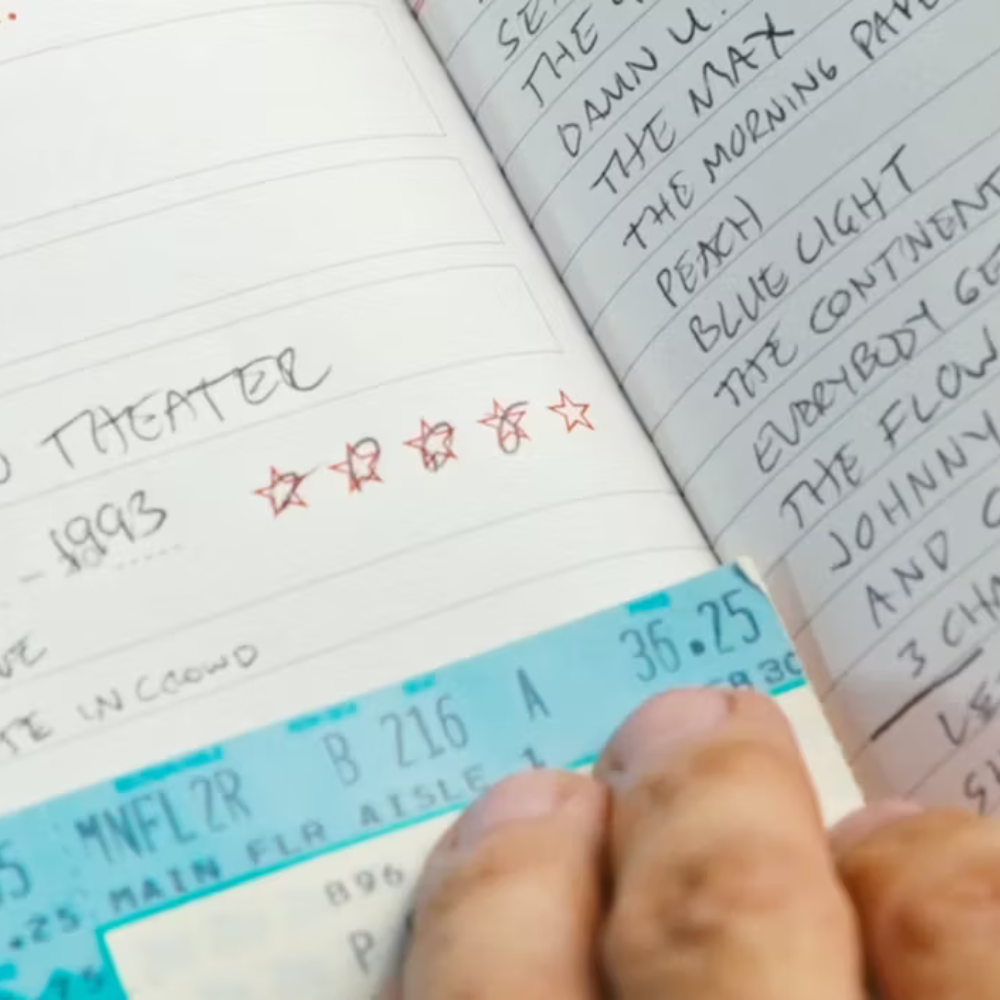 THEATER
- 1993
IN CROWD
36.25
MNFL2R B 216 A
MAIN FLR AISLE 1
.25
896
P
THE
DAMN U.
THE MAX
THE MORNING
PEACH
BLUE LIGHT
THE CONTINENT
EVERYBODY GE
THE FLOW
JOHNNY
AND
3 CHA